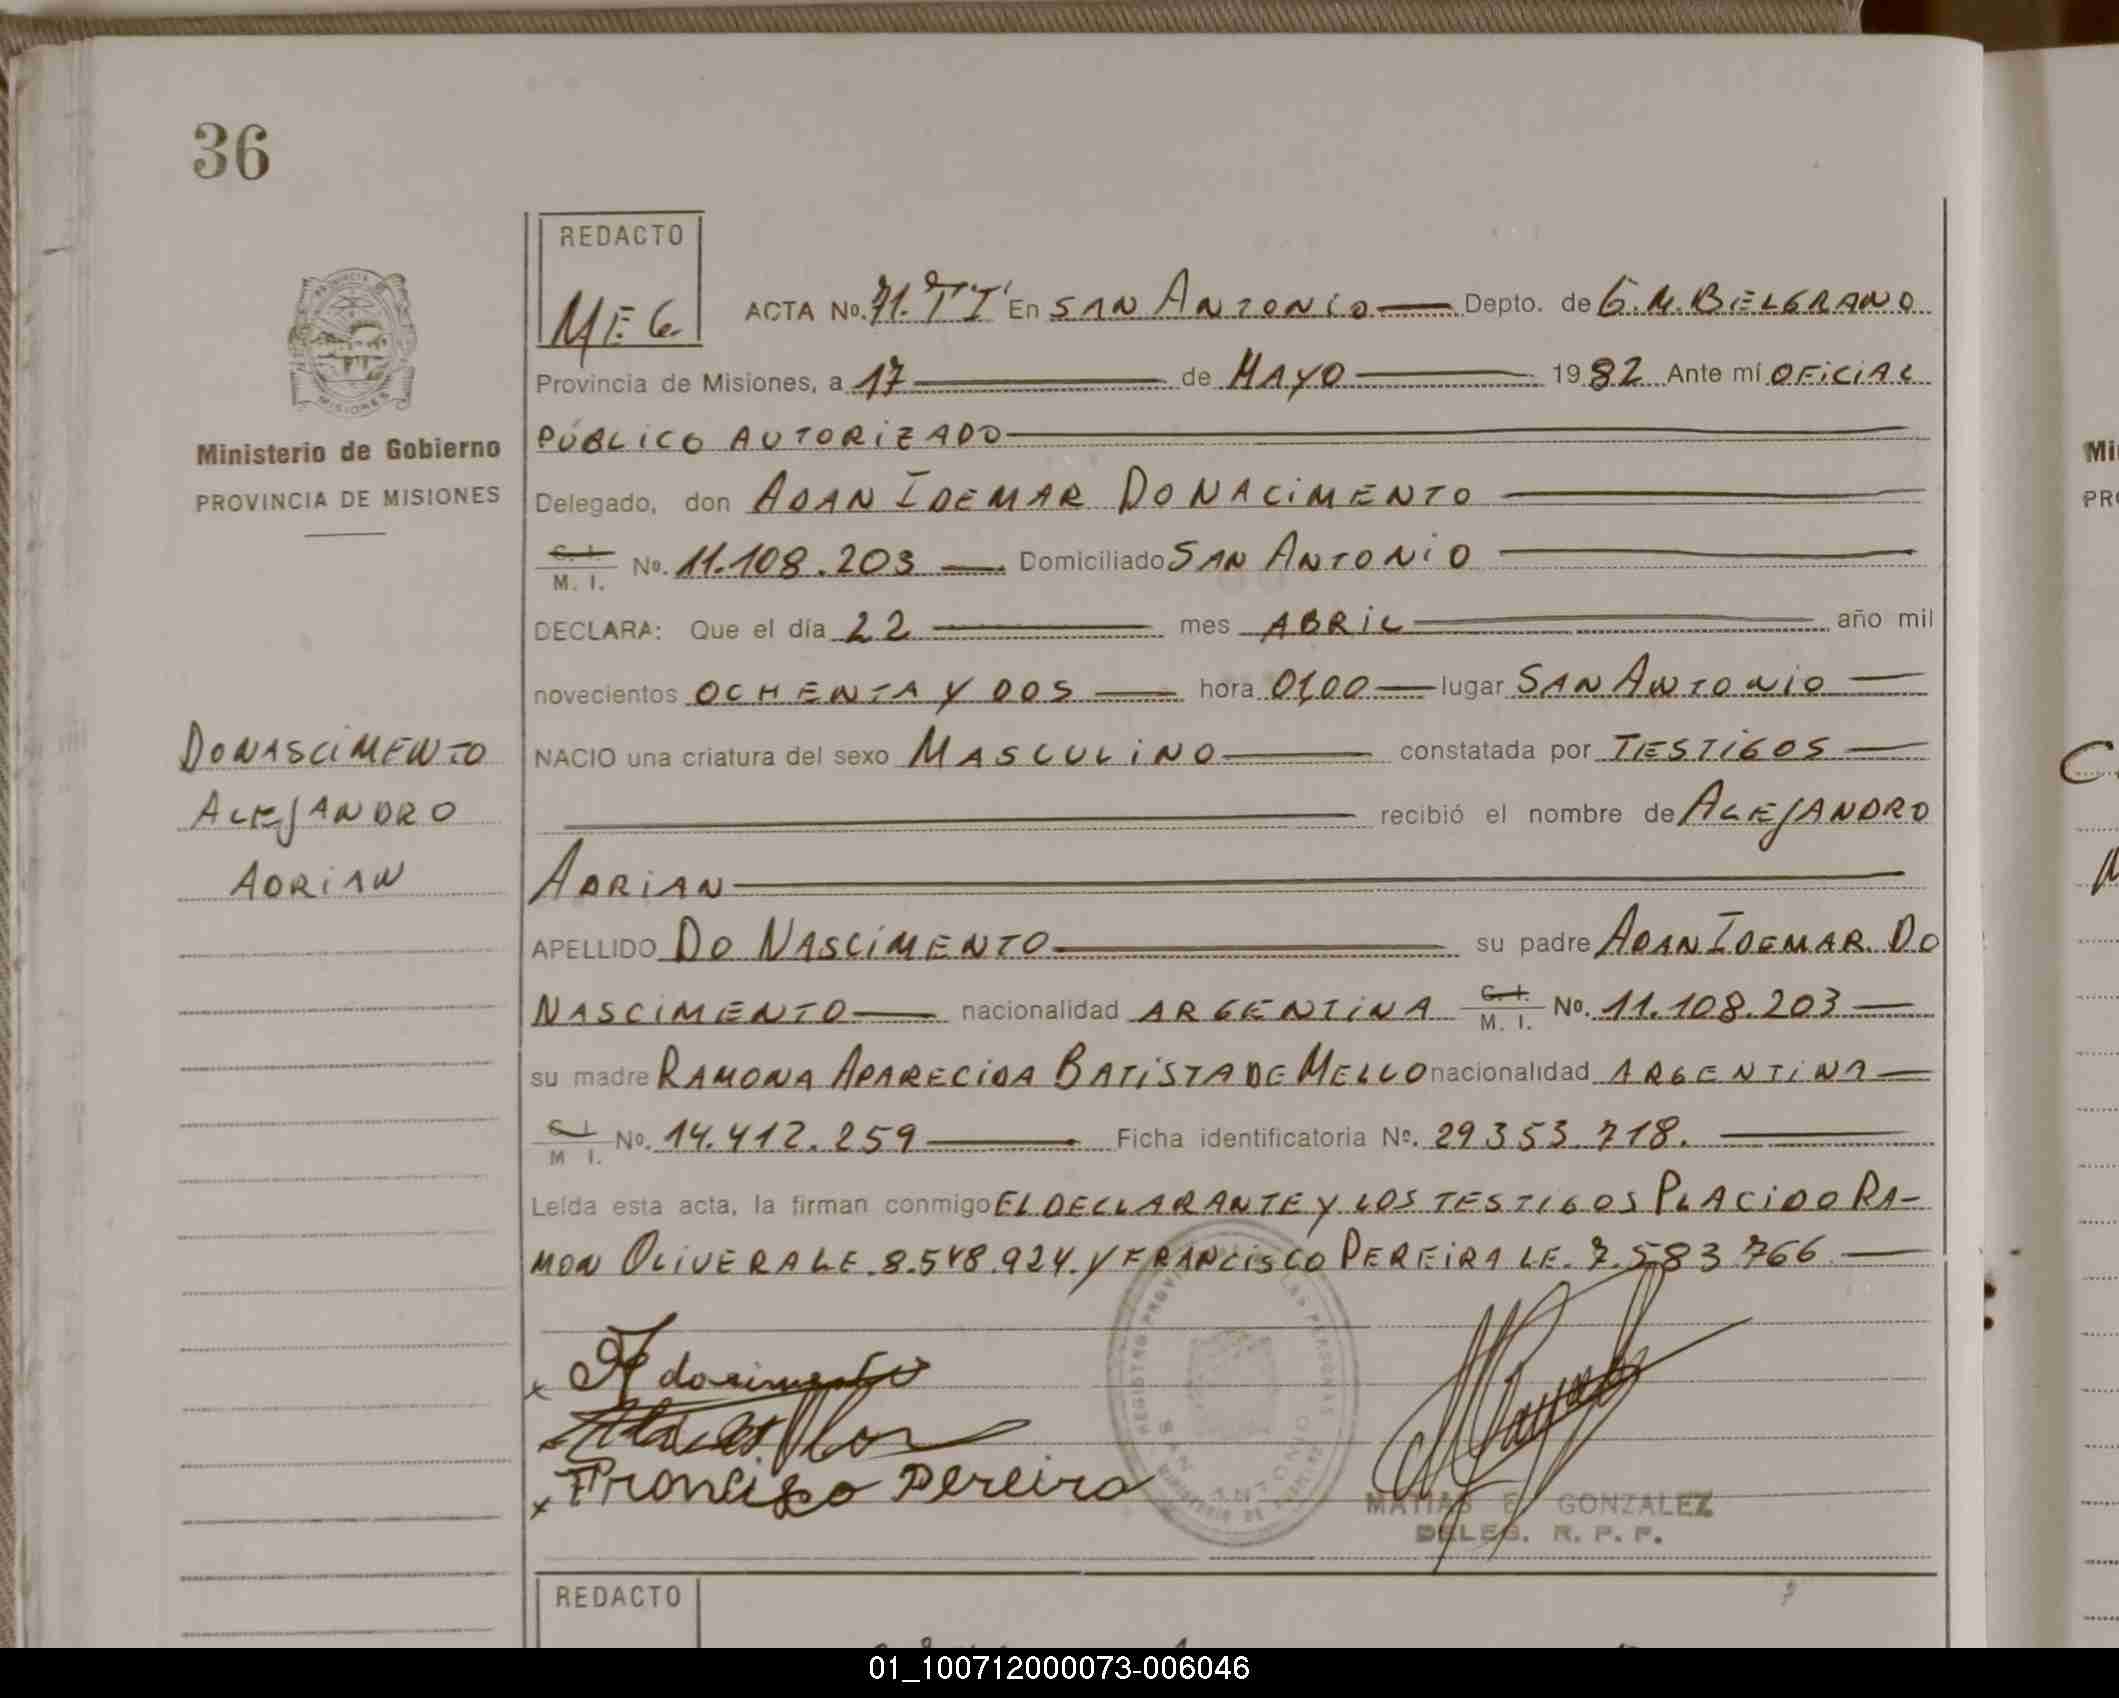 36
REDACTO
MEG.
ACTA No. 71.TºI' En SAN ANTONIO Depto. de G.M. BELGRANO
Provincia de Misiones, a 17 de MAYO 1982 Ante mí OFICIAL
PÚBLICO AUTORIZADO
Ministerio de Gobierno
PROVINCIA DE MISIONES
Delegado, don ADAN IDEMAR DO NACIMENTO
C. I.
M. I. No. 11.108.203 Domiciliado SAN ANTONIO
DECLARA: Que el día 22 mes ABRIL año mil
novecientos OCHENTA Y DOS hora 01,00 lugar SAN ANTONIO
DONASCIMENTO
ALEJANDRO
ADRIAN
NACIO una criatura del sexo MASCULINO constatada por TESTIGOS
recibió el nombre de ALEJANDRO
ADRIAN
APELLIDO DO NASCIMENTO su padre ADAN IDEMAR DO
NASCIMENTO nacionalidad ARGENTINA C. I. M. I. No. 11.108.203
su madre RAMONA APARECIDA BATISTA DE MELLO nacionalidad ARGENTINA
C. I.
M I. No. 14.412.259 Ficha identificatoria No. 29353.718.
Leída esta acta, la firman conmigo EL DECLARANTE Y LOS TESTIGOS PLACIDO RA-
MON OLIVERA LE. 8.548.924. Y FRANCISCO PEREIRA LE. 7.583 766
Francisco Pereira
REGISTRO PROVINCIAL LAS PERSONAS
SAN ANTONIO
MATIAS E GONZALEZ
DELEG. R. P. P.
REDACTO
Mi
PRO
01_100712000073-006046